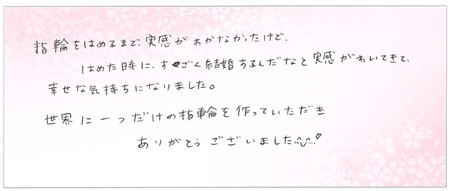 指輪をはめるまで、実感がわかなかったけど、
はめた時に、すごく結婚するしだなと実感がわいてきて、
幸せな気持ちになりました。
世界に一つだけの指輪を作っていただき
ありがとうございました